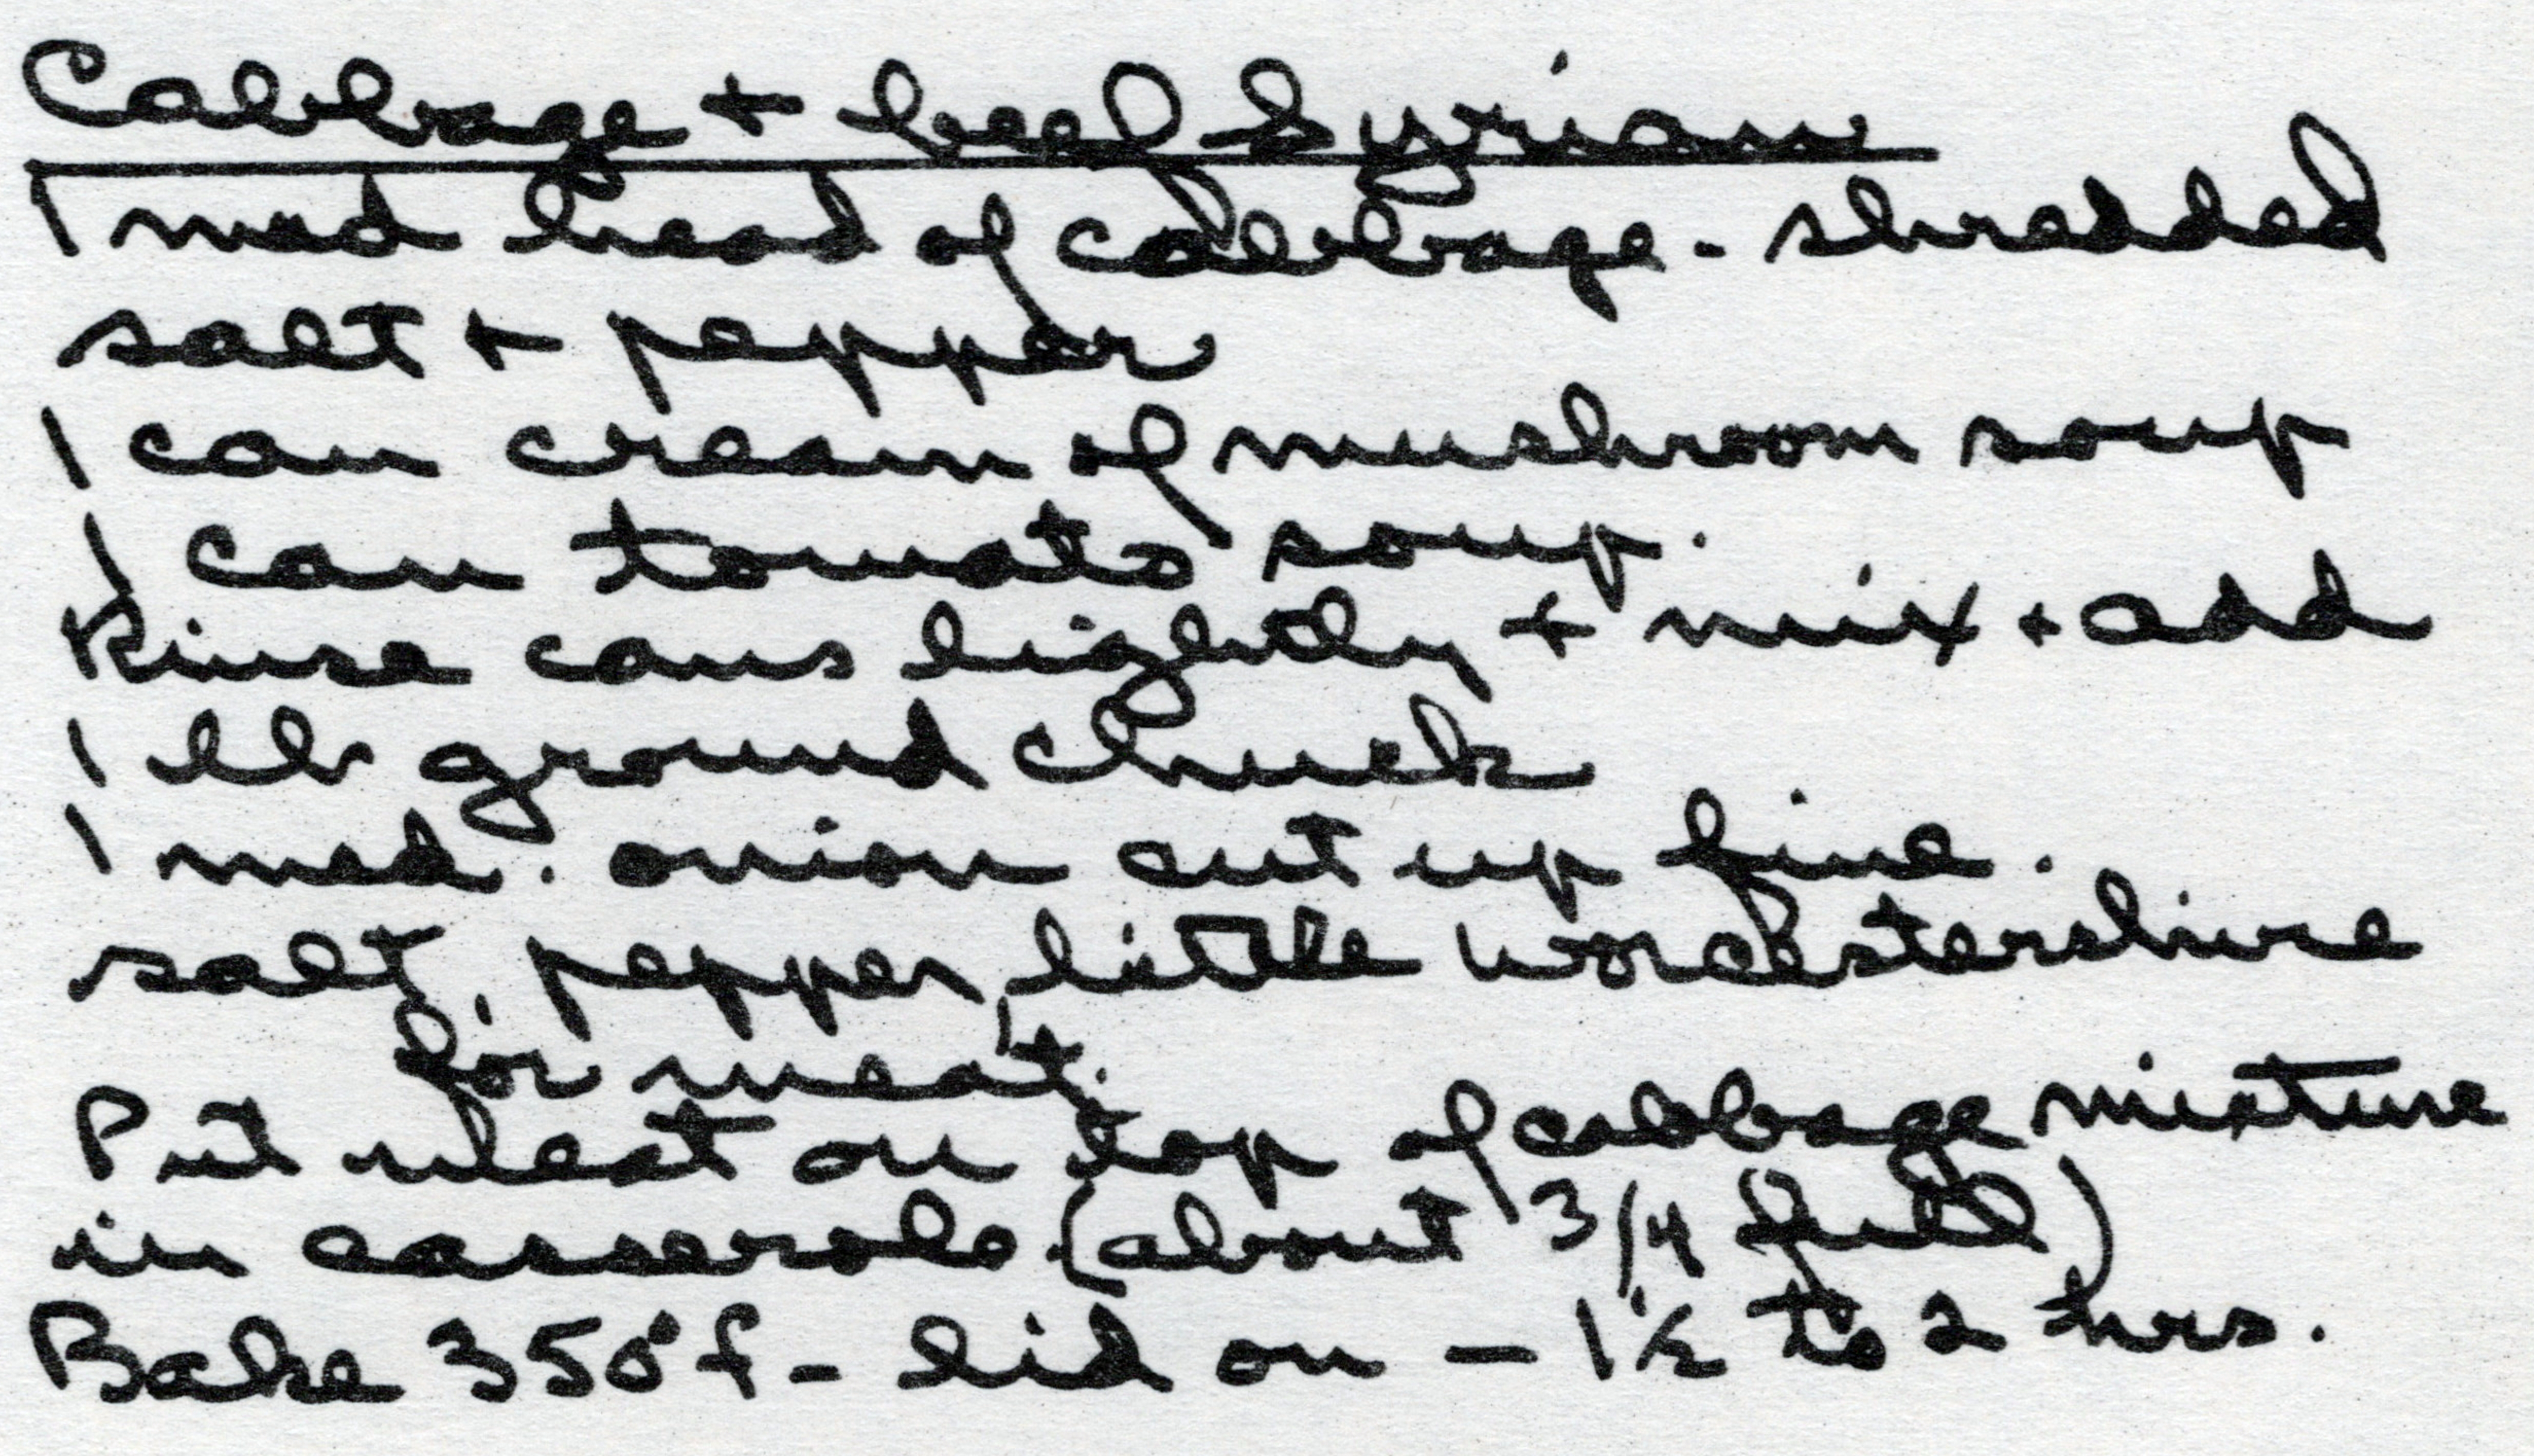 Cabbage + beef Syrian
1 med head of cabbage - shredded
salt + pepper
1 can cream of mushroom soup
1 can tomato soup.
Rinse cans lightly + mix + add
1 lb ground chuck
1 med. onion cut up fine.
salt, pepper, little worcestershire
for meat.
Put meat on top of cabbage mixture
in casserole (about 3/4 full)
Bake 350° f - lid on - 1 1/2 to 2 hrs.